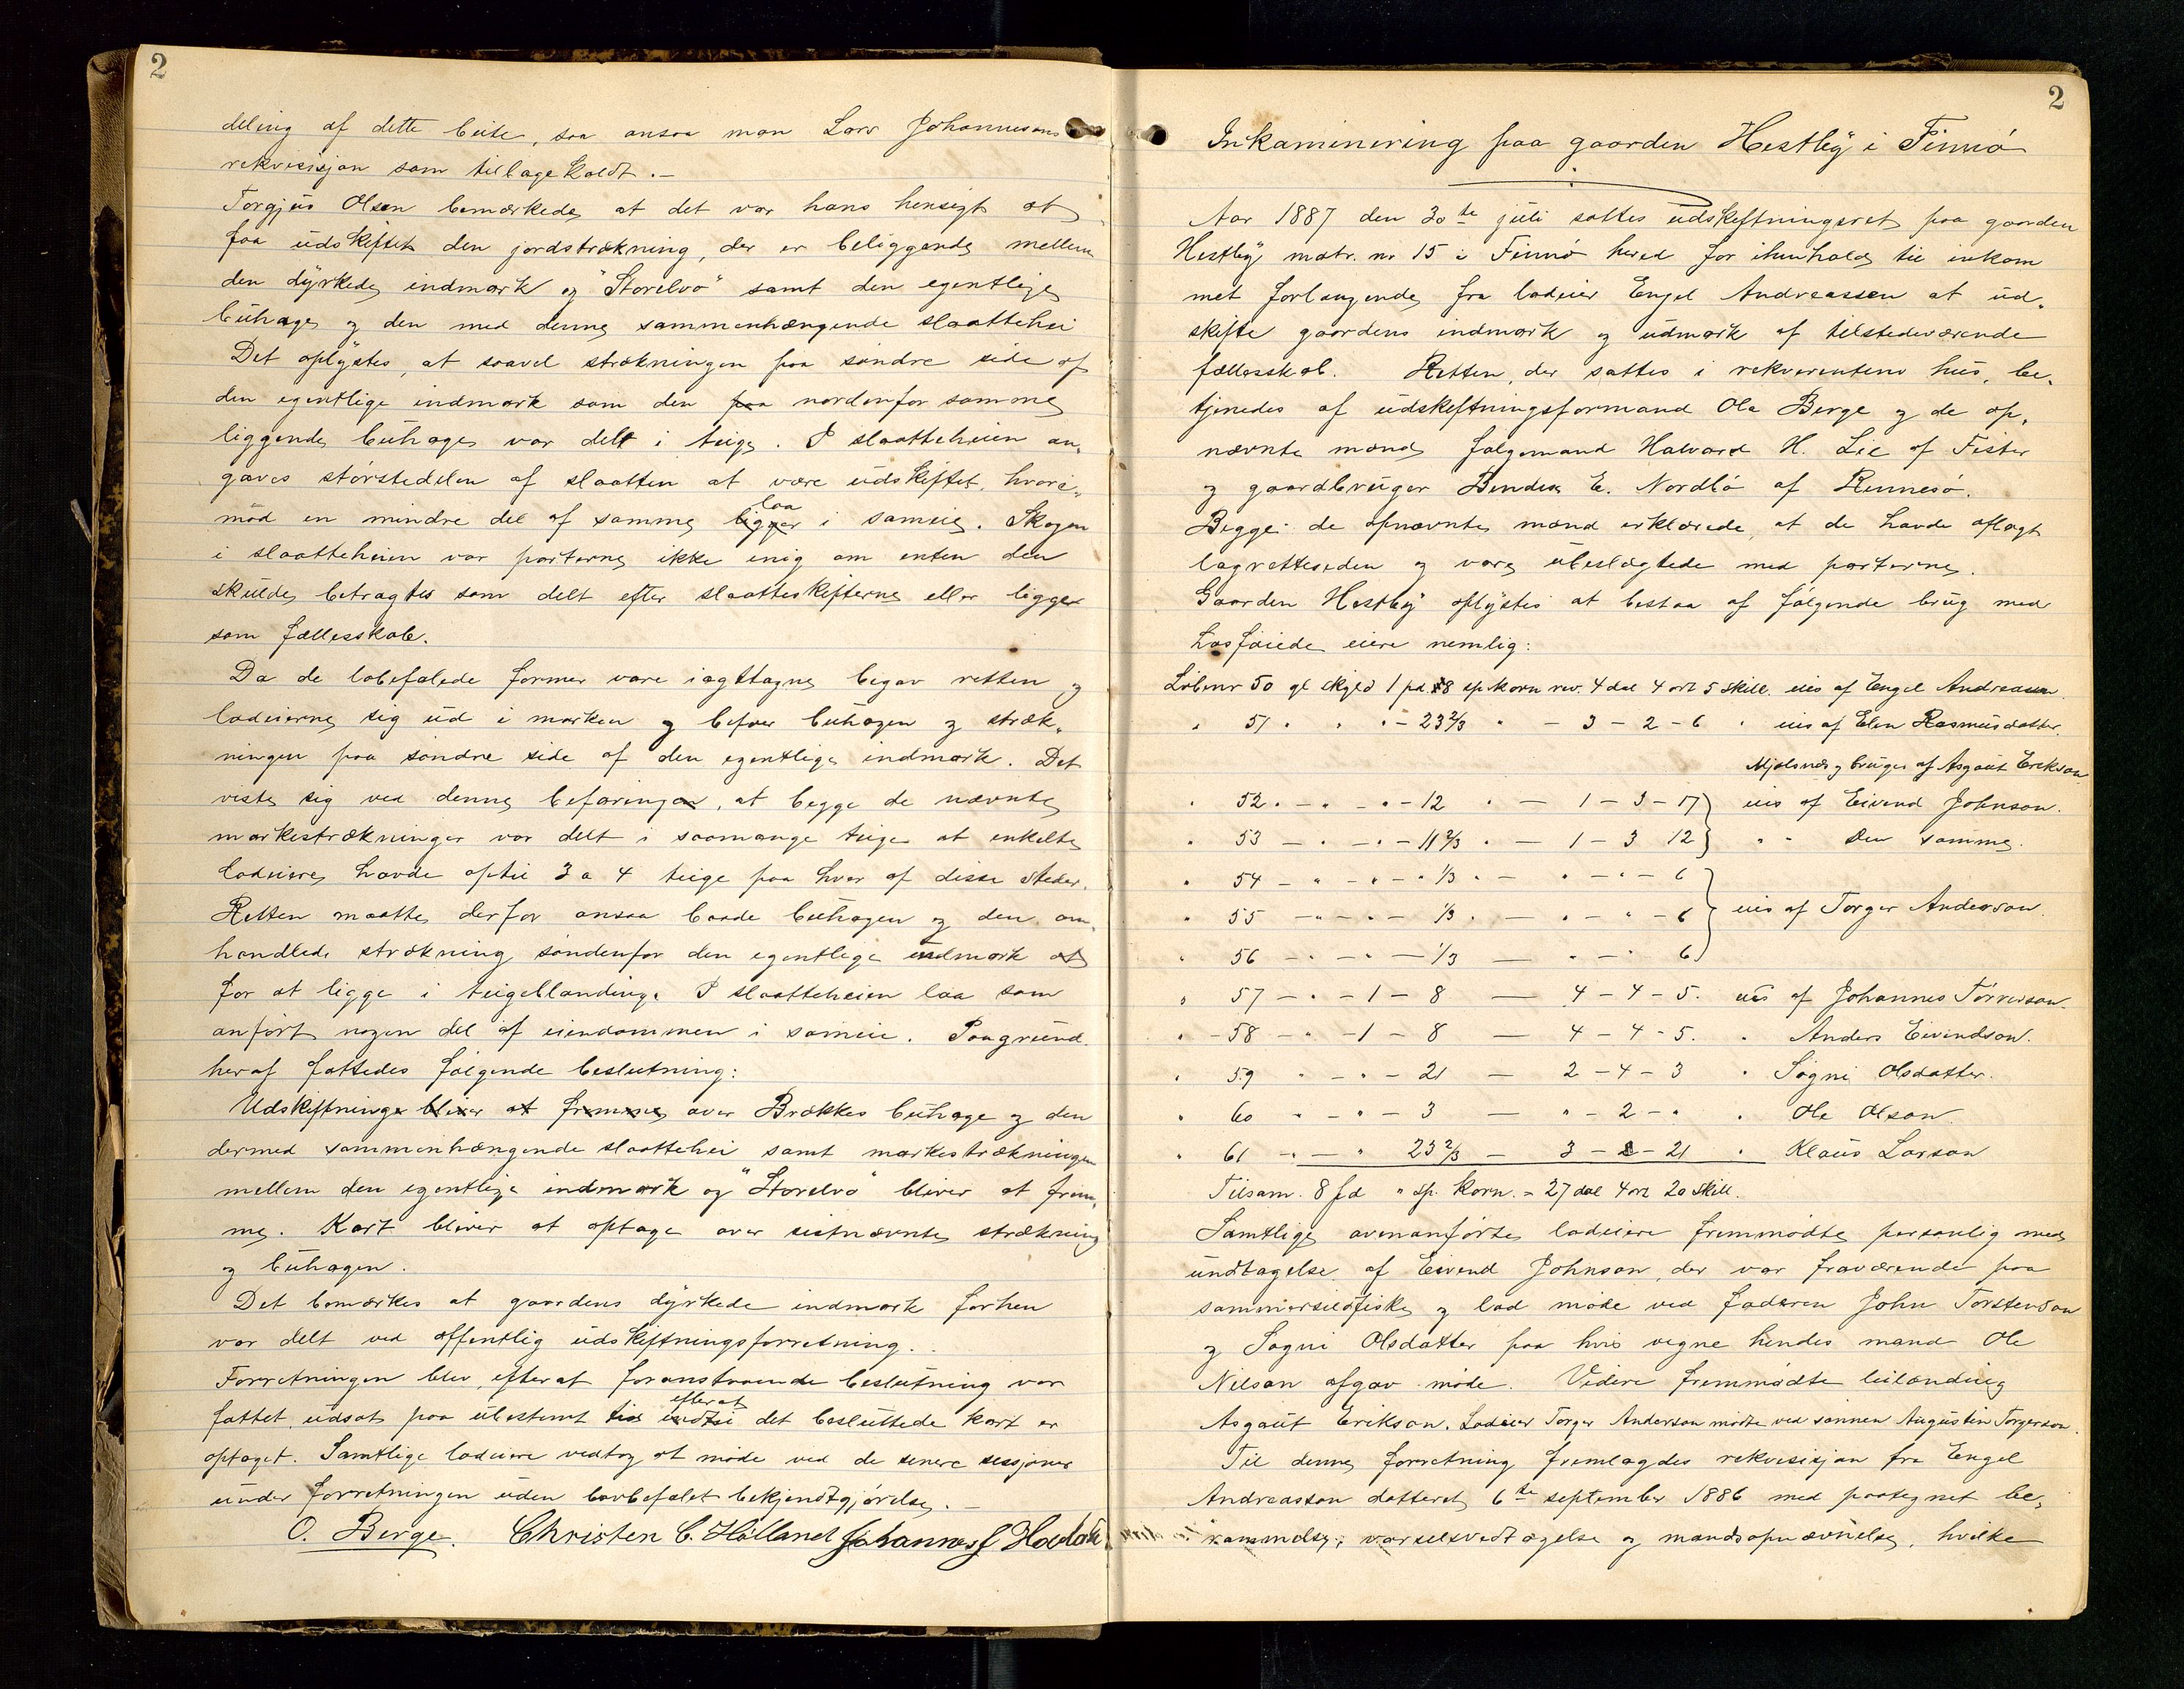 2
deling af dette beite, saa ansaa man Lars Johannesens
rekvisisjon som tilbagekaldt.—
Torgjus Olsen bemærkede at det var hans hensigt at
faa udskiftet den jordstrækning, der er beliggende mellem
den dyrkede indmark og "Storelva" samt den egentlige
buhage og den med denne sammenhængende slaattehei
Det oplystes, at saavel strækningen paa søndre side af
den egentlige indmark som den paa nordenfor samme
liggende buhage var delt i teige. I slaatteheien an-
gaves størstedelen af slaatten at være udskiftet, hvori-
mod en mindre del af samme ligger laa i sameie. Skogen
i slaatteheien var parterne ikke enig om enten den
skulde betragtes som delt efter slaatteskifterne eller ligger
som fællesskab.
Da de lobefalede former vare iagttagne begav retten og
lodeierne sig ud i marken og befoer buhagen og stræk-
ningen paa søndre side af den egentlige indmark. Det
viste sig ved denne befaringen, at begge de nævnte
markestrækninger var delt i saamange teige at enkelte
lodeiere havde optil 3 a 4 teige paa hver af disse steder.
Retten maatte derfor ansaa baade buhagen og den om-
handlede strækning søndenfor den egentlige indmark at
for at ligge i teigeblanding. I slaatteheien laa som
anført nogen del af eiendommen i sameie. Paagrund
heraf fattedes følgende beslutning:
Udskiftninge bliver at fremme over Brækkes buhage og den
dermed sammenhængende slaattehei samt markestrækningen
mellem den egentlige indmark og "Storelva" bliver at frem-
me. Kart bliver at optage over sistnævnte strækning
og buhagen.
Det bemærkes at gaardens dyrkede indmark forhen
var delt ved offentlig udskiftningsforretning.
Forretningen blev, efterat foranstaaende beslutning var
fattet, udsat paa ubestemt tid efterat det besluttede kart er
optaget. Samtlige lodeiere vedtog at møde ved de senere sessjoner
under forretningen uden lovbefalet bekjendtgjørelse.—
O. Berge. Christen C. Hålland Johannes
2
Inkaminering paa gaarden Hestby i Finnø
Aar 1887 den 30te juli sattes udskiftningsret paa gaarden
Hestby matr. nr 15 i Finnø hered for ihenhold til inkom
met forlangende fra lodeier Engel Andreassen at ud-
skifte gaardens indmark og udmark af tilstedeværende
fællesskab. Retten, der sattes i rekverentens hus, be-
tjenedes af udskiftningsformand Ole Berge og de op-
nævnte mænd følgemand Halvard H. Lie af Fister
og gaardbruger Bendix E. Nordbø af Rennesø.
Begge de opnævnte mænd erklærede, at de havde aflagt
lagretteseden og vare ubeslægtede med parterne.
Gaarden Hestby oplystes at bestaa af følgende brug med
hosføiede eiere nemlig:
Løbenr 50 gl skyld 1 pd 8 sp korn rev. 4 dal 4 ort 5 skill. eies af Engel Andreassen.
" 51 " " " - 23 2/3 " - 3 - 2 - 6 " eies af Elen Rasmusdatter.
Mjølsnes og bruges af Asgaut Erikson
" 52 " - " - " - 12 " — 1 - 3 - 17 } eies af Eivend Johnson.
" 53 — " — " - 11 2/3 " — 1 - 3 12 } " " Den samme.
" 54 - " - " - " 1/3 " — " - " - 6 }
" 55 - " - " - 1/3 " — " - " - 6 } eies af Torger Anderson.
" 56 - " - " — 1/3 — " - " 6 }
" 57 - " - 1 - 8 — 4 - 4 - 5. eies af Johannes Tørresson.
" - 58 - " - 1 - 8 — 4 - 4 - 5. " Anders Eivindson.
" 59 " - " - 21 — 2 - 4 - 3 " Sogni Olsdatter.
" 60 " - " - 3 — " - 2 - " " Ole Olson.
" 61 - " - " 23 2/3 — 3 - 2 - 21 " Klaus Larson
Tilsam. 8 pd " sp. korn. - 27 dal 4 ort 20 skill.
Samtlige ovenanførte lodeiere fremmødte personlig med
undtagelse af Eivend Johnson, der var fraværende paa
sommersildfiske og lod møde ved faderen John Torstenson
og Sogni Olsdatter paa hvis vegne hendes mand Ole
Nilson afgav møde. Videre fremmødte leilænding
Asgaut Erikson. Lodeier Torger Anderson mødte ved sønnen Augustin Torgerson.
Til denne forretning fremlagdes rekvisisjon fra Engel
Andreasson datteret 6te september 1886 med paategnet be-
rammelse, varselsvedtagelse og mandsopnævnelse, hvilke